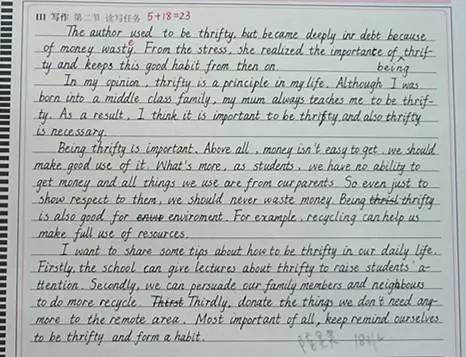 III 写作 第二节 读写任务 5+18=23
The author used to be thrifty, but became deeply in debt because
of money waste. From the stress, she realized the importance of being thrif-
ty and keeps this good habit from then on.
In my opinion, thrifty is a principle in my life. Although I was
born into a middle class family, my mum always teaches me to be thrif-
ty. As a result, I think it is important to be thrifty and also thrifty
is necessary.
Being thrifty is important. Above all, money isn't easy to get, we should
make good use of it. What's more, as students, we have no ability to
get money and all things we use are from our parents. So even just to
show respect to them, we should never waste money. Being thrifty
is also good for enviroment. For example, recycling can help us
make full use of resources.
I want to share some tips about how to be thrifty in our daily life.
Firstly, the school can give lectures about thrifty to raise students' a-
ttention. Secondly, we can persuade our family members and neighbours
to do more recycle. Thirdly, donate the things we don't need any-
more to the remote area. Most important of all, keep remind ourselves
to be thrifty and form a habit.